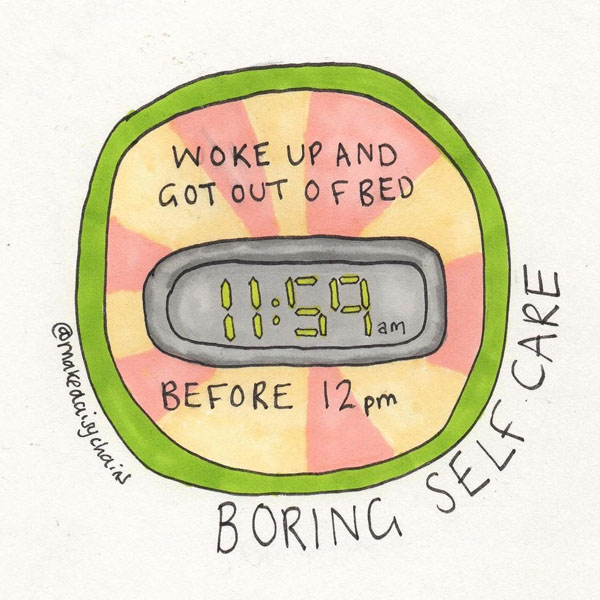 WOKE UP AND
GOT OUT OF BED
11:59 am
BEFORE 12 pm
BORING SELF-CARE
@makedaisychains